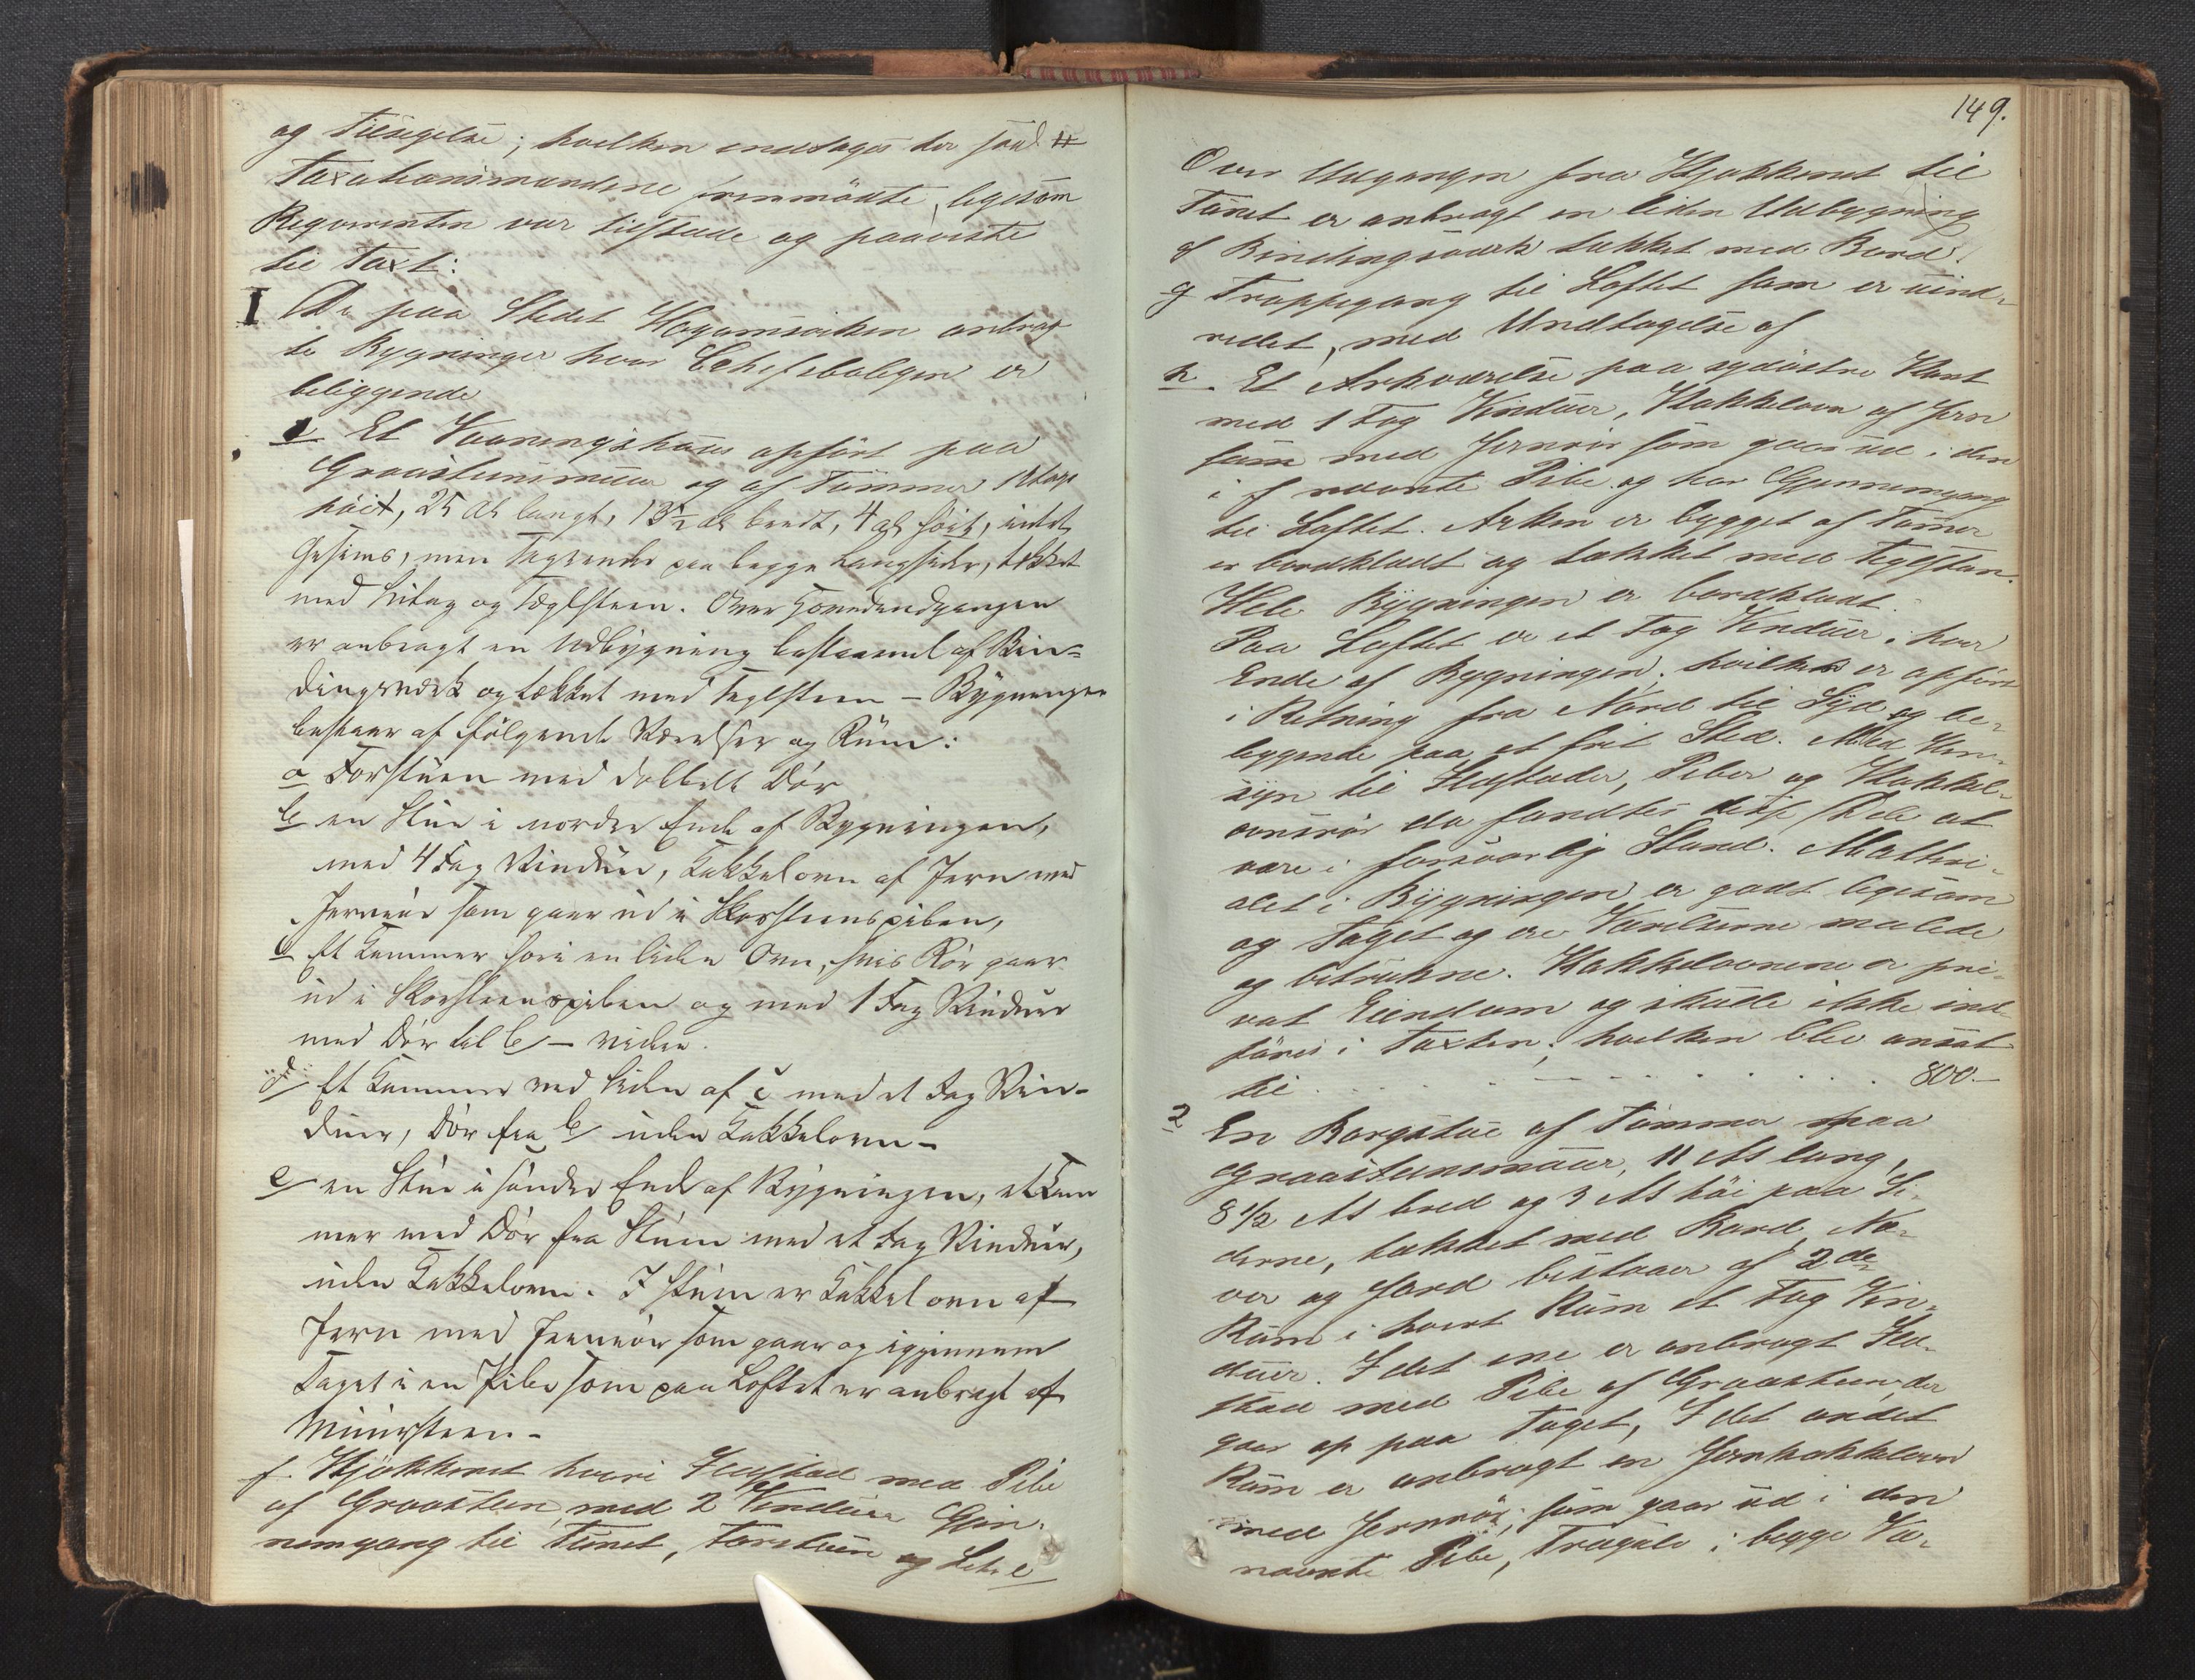 og Tilsigelse; hvilken modtoges der saml
Taxationsmændene fremmødte, ligesom
Reqvirenten var tilstede og paaviste
til Taxt:
I De paa Stedet anbrag
te Bygninger hvor Chefsboligen er
beliggende
1 Et Vaaningshuus opført paa
Graasteensmuur og af Tømmer 1 Etage
høit, 25 Al langt, 13½ Al bredt, 4 Al høit, uden
Gesims, men Tagrender paa begge Langsider, tækket
med Sutag og Tæglsteen. Over Hovedindgangen
er anbragt en Udbygning bestaaende af Bin-
dingsværk og tækket med Teglsteen – Bygningen
bestaar af følgende Værelser og Rum:
a Forstuen med dobbelt Dør
b en Stue i nordre Ende af Bygningen,
med 4 Fag Vinduer, Kakkelovn af Jern med
Jernrør som gaar ud i Skorsteenspiben,
c Et Kammer hvori en liden Ovn, hvis Rør gaar
ud i Skorsteenspiben og med 1 Fag Vinduer
med Dør til b – viden.
d Et Kammer ved Siden af c med et Fag Vin-
duer, Dør fra b uden Kakkelovn –
e en Stue i søndre Ende af Bygningen, et Kam
mer med Dør fra Stuen med et Fag Vinduer,
uden Kakkelovn. I Stuen er Kakkelovn af
Jern med Jernrør som gaar op igjennem
Taget i en Pibe som paa Loftet er anbragt af
Muursteen –
f. Kjøkkenet hvori Ildsted med Pibe
af Graasteen, med 2 Vinduer Gjen-
nemgang til Tunet, Forstuen og Let. e
149.
Over Udgangen fra Kjøkkenet til
Tunet er anbragt en liden Udbygning
af Bindingsværk tækket med Bord.
g Trappegang til Loftet som er uind-
redet, med Undtagelse af
h. Et Arkværelse paa sydøstre Kant
med 1 Fag Vinduer, Kakkelovn af Jern
som med Jernrør som gaar ud i den
i f nævnte Pibe og har Gjennemgang
til Loftet. Arken er bygget af Tømer
er bordklædt og tækket med Teglsteen.
Hele Bygningen er bordklædt.
Paa Loftet er et Fag Vinduer i hver
Ende af Bygningen, hvilken er opført
i Retning fra Nord til Syd og be-
liggende paa et frit Sted. Med Hen-
syn til Ildsteder, Piber og Kakkel-
ovnsrør da fandtes disse Dele at
være i forsvarlig Stand. Matteri-
alet i Bygningen er godt ligesom
og Taget og ere Værelserne malede
og betrukne. Kakkelovnene er pri-
vat Eiendom og skulle ikke ind-
føres i Taxten, hvilken blev ansat
til . . . . . . . . . . 800.–
2 En Borgstue af Tømmer paa
Graasteensmuur, 11 Al lang,
8 1/2 Al bred og 3 Al høi paa Si-
derne, tækket med Bord, Næ-
ver og Jord bestaaer af 2de
Rum i hvert Rum et Fag Vin-
duer. I det ene er anbragt Ild-
sted med Pibe af Graasteen der
gaar op paa Taget, I det andet
Rum er anbragt en Jernkakkelovn
med Jernrør, som gaar ud i den
nævnte Pibe, Trægulv i begge Væ-